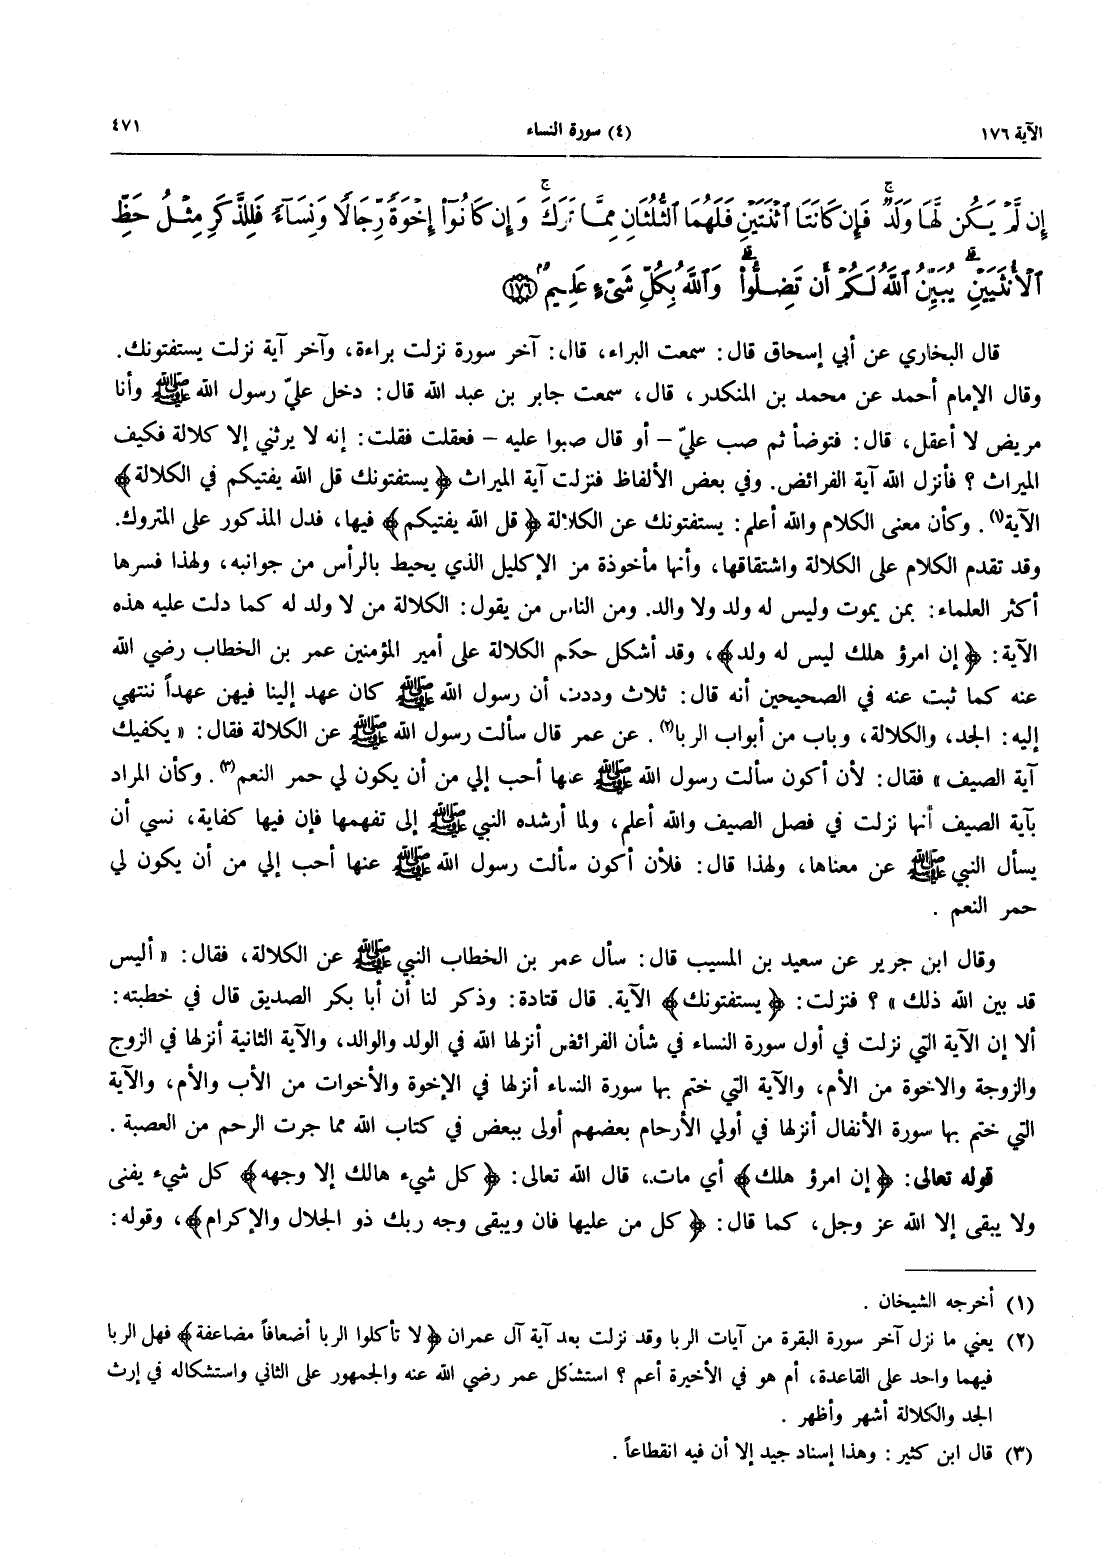 الآية ١٧٦ (٤) سورة النساء ٤٧١
إِن لَّمْ يَكُن لَّهَا وَلَدٌ فَإِن كَانَتَا اثْنَتَيْنِ فَلَهُمَا الثُّلُثَانِ مِمَّا تَرَكَ وَإِن كَانُوا إِخْوَةً رِّجَالًا وَنِسَاءً فَلِلذَّكَرِ مِثْلُ حَظِّ
الْأُنثَيَيْنِ يُبَيِّنُ اللَّهُ لَكُمْ أَن تَضِلُّوا وَاللَّهُ بِكُلِّ شَيْءٍ عَلِيمٌ ﴿١٧٦﴾
قال البخاري عن أبي إسحاق قال: سمعت البراء، قال: آخر سورة نزلت براءة، وآخر آية نزلت يستفتونك.
وقال الإمام أحمد عن محمد بن المنكدر، قال، سمعت جابر بن عبد الله قال: دخل عليّ رسول الله ﷺ وأنا
مريض لا أعقل، قال: فتوضأ ثم صب عليّ - أو قال صبوا عليه - فعقلت فقلت: إنه لا يرثني إلا كلالة فكيف
الميراث ؟ فأنزل الله آية الفرائض. وفي بعض الألفاظ فنزلت آية الميراث ﴿يستفتونك قل الله يفتيكم في الكلالة﴾
الآية(١). وكأن معنى الكلام والله أعلم: يستفتونك عن الكلالة ﴿قل الله يفتيكم﴾ فيها، فدل المذكور على المتروك.
وقد تقدم الكلام على الكلالة واشتقاقها، وأنها مأخوذة من الإكليل الذي يحيط بالرأس من جوانبه، ولهذا فسرها
أكثر العلماء: بمن يموت وليس له ولد ولا والد. ومن الناس من يقول: الكلالة من لا ولد له كما دلت عليه هذه
الآية: ﴿إن امرؤ هلك ليس له ولد﴾، وقد أشكل حكم الكلالة على أمير المؤمنين عمر بن الخطاب رضي الله
عنه كما ثبت عنه في الصحيحين أنه قال: ثلاث وددت أن رسول الله ﷺ كان عهد إلينا فيهن عهداً ننتهي
إليه: الجد، والكلالة، وباب من أبواب الربا(٢). عن عمر قال سألت رسول الله ﷺ عن الكلالة فقال: « يكفيك
آية الصيف » فقال: لأن أكون سألت رسول الله ﷺ عنها أحب إلي من أن يكون لي حمر النعم(٣). وكأن المراد
بآية الصيف أنها نزلت في فصل الصيف والله أعلم، ولما أرشده النبي ﷺ إلى تفهمها فإن فيها كفاية، نسي أن
يسأل النبي ﷺ عن معناها، ولهذا قال: فلأن أكون سألت رسول الله ﷺ عنها أحب إلي من أن يكون لي
حمر النعم .
وقال ابن جرير عن سعيد بن المسيب قال: سأل عمر بن الخطاب النبي ﷺ عن الكلالة، فقال: « أليس
قد بين الله ذلك » ؟ فنزلت: ﴿يستفتونك﴾ الآية. قال قتادة: وذكر لنا أن أبا بكر الصديق قال في خطبته:
ألا إن الآية التي نزلت في أول سورة النساء في شأن الفرائض أنزلها الله في الولد والوالد، والآية الثانية أنزلها في الزوج
والزوجة والاخوة من الأم، والآية التي ختم بها سورة النساء أنزلها في الإخوة والأخوات من الأب والأم، والآية
التي ختم بها سورة الأنفال أنزلها في أولي الأرحام بعضهم أولى ببعض في كتاب الله مما جرت الرحم من العصبة .
قوله تعالى: ﴿إن امرؤ هلك﴾ أي مات، قال الله تعالى: ﴿كل شيء هالك إلا وجهه﴾ كل شيء يفنى
ولا يبقى إلا الله عز وجل، كما قال: ﴿كل من عليها فان ويبقى وجه ربك ذو الجلال والإكرام﴾، وقوله:
(١) أخرجه الشيخان .
(٢) يعني ما نزل آخر سورة البقرة من آيات الربا وقد نزلت بعد آية آل عمران ﴿لا تأكلوا الربا أضعافاً مضاعفة﴾ فهل الربا
فيهما واحد على القاعدة، أم هو في الأخيرة أعم ؟ استشكل عمر رضي الله عنه والجمهور على الثاني واستشكاله في إرث
الجد والكلالة أشهر وأظهر .
(٣) قال ابن كثير : وهذا إسناد جيد إلا أن فيه انقطاعاً .